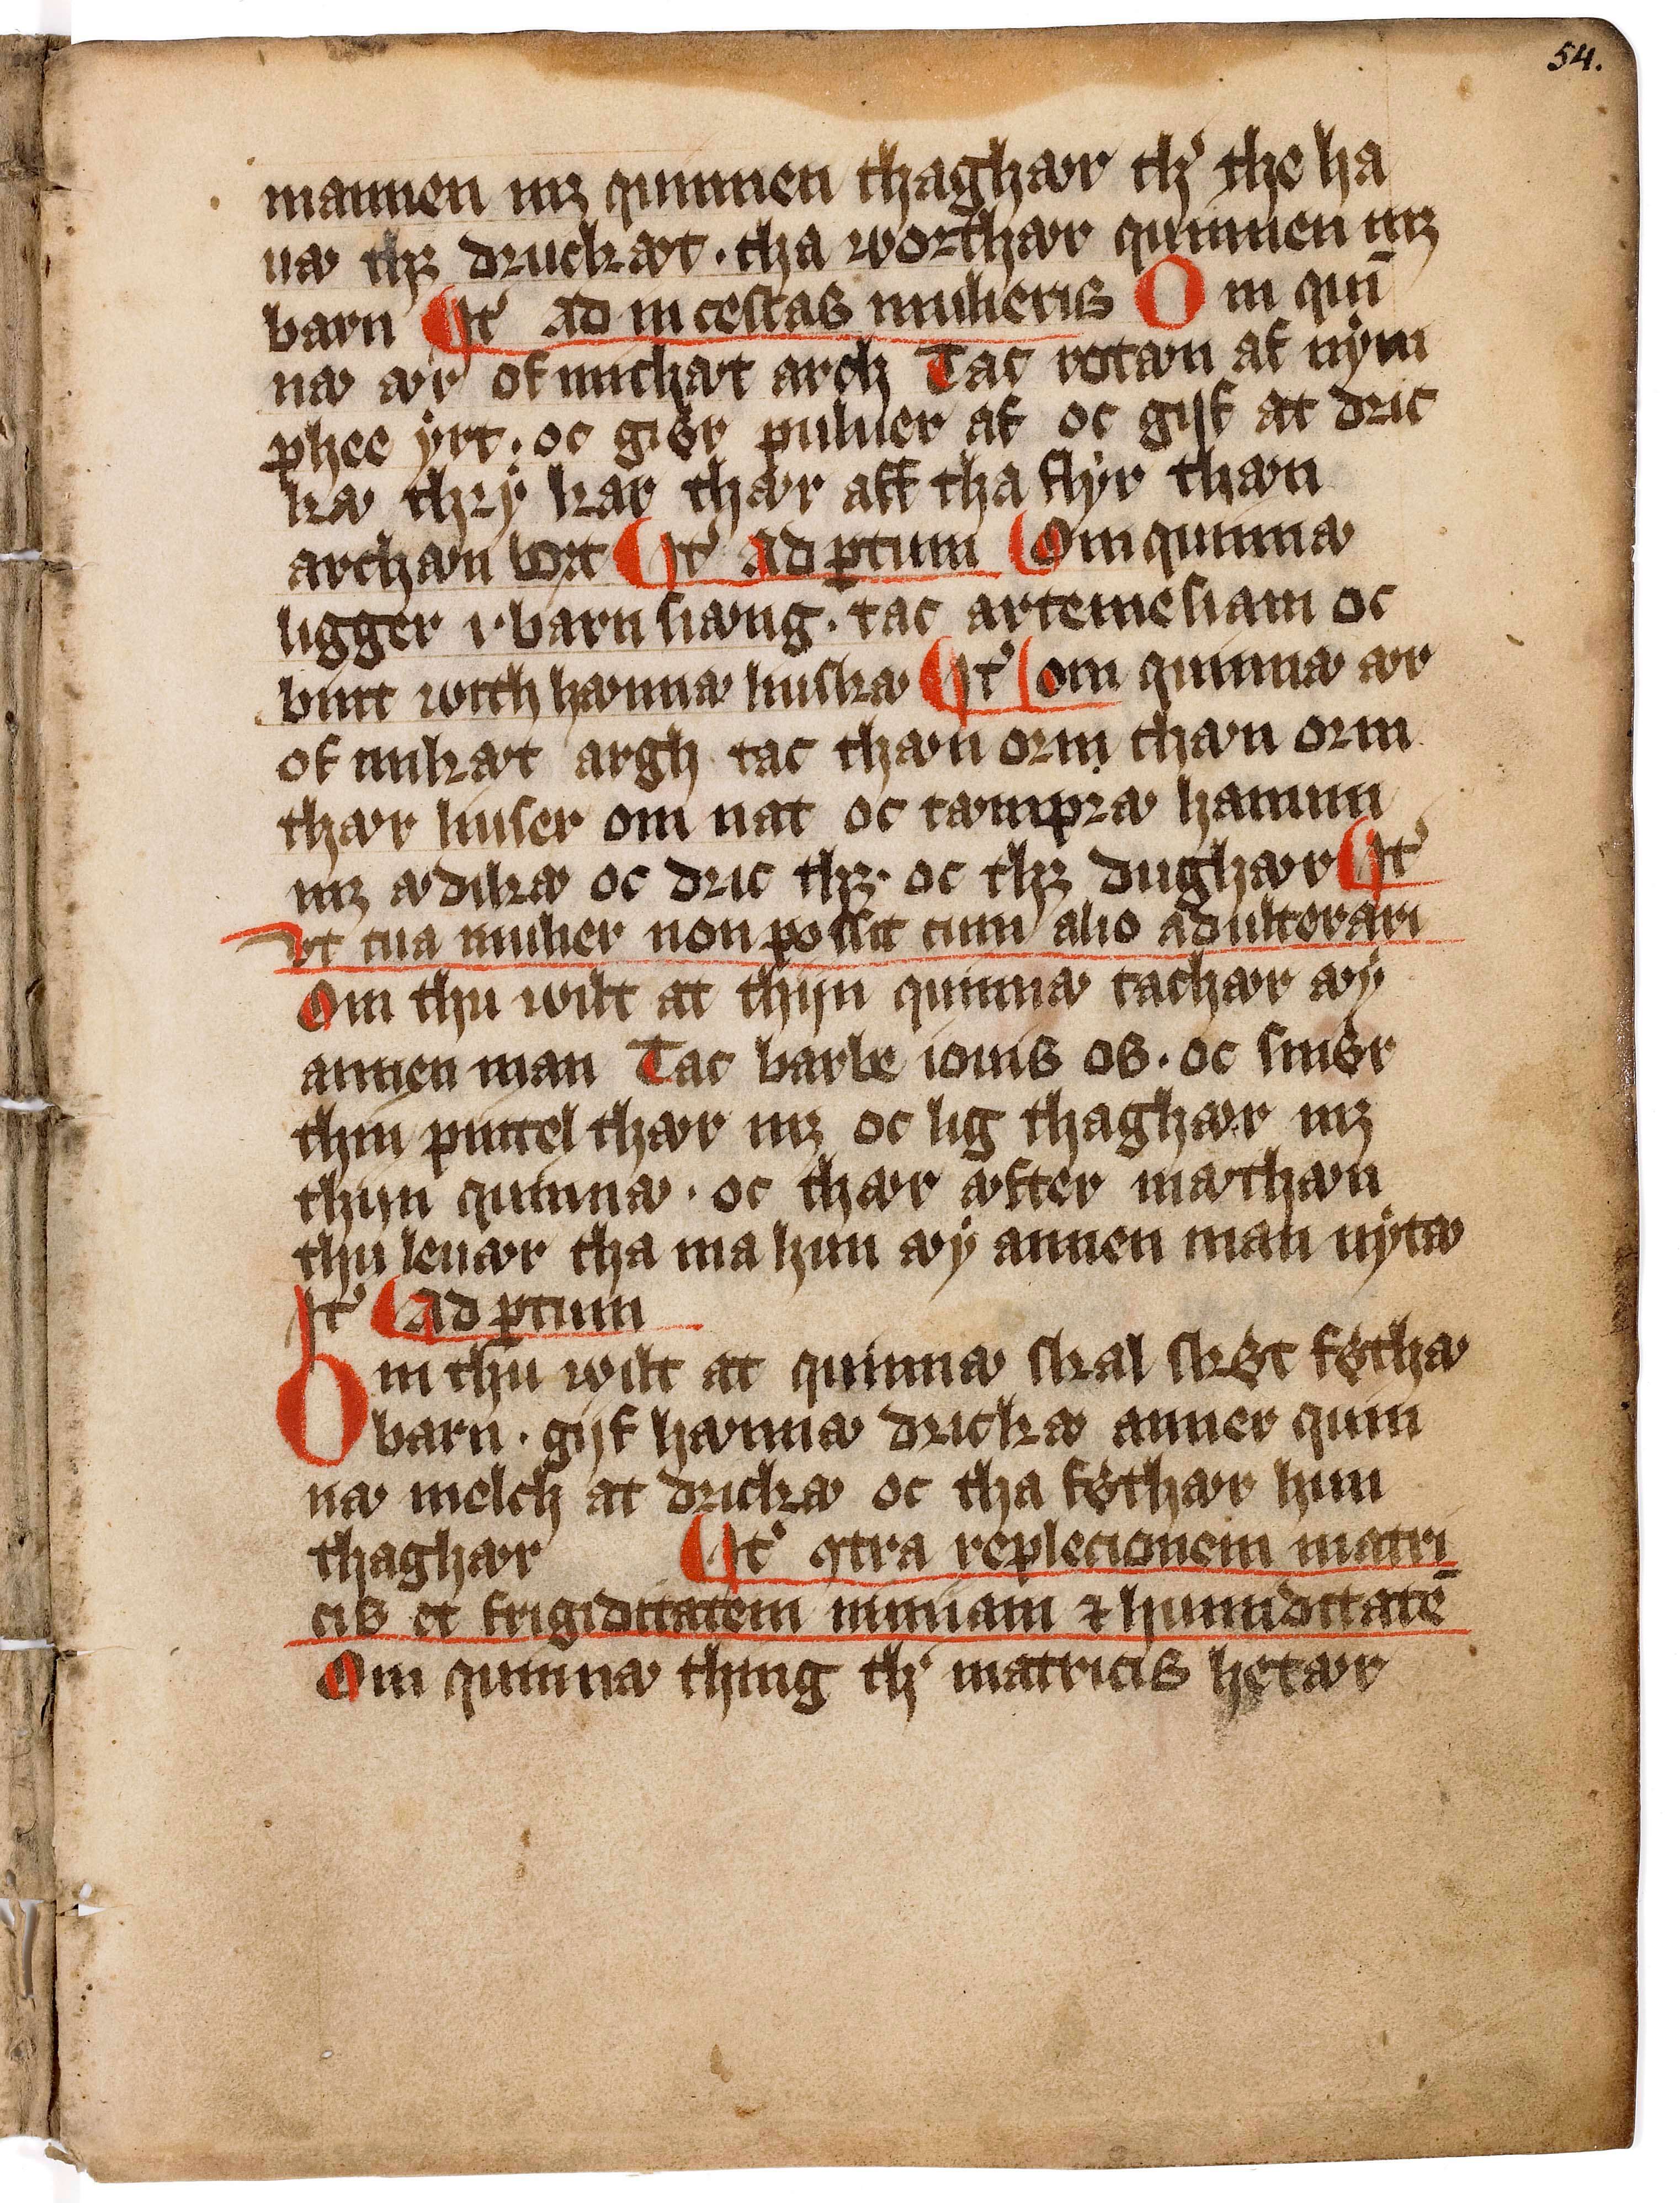 54.
mannen mꝫ quinnen thaghær th᷑ the ha
uæ thꝫ druckæt · tha worthær quinnen mꝫ
barn It᷑ ad incestas mulieris Om quī
næ ær of michæt arch Tac rotæn af nÿm
phee ÿrt · oc giør puluer af oc gijf at dric
kæ thrÿ kar thær aff tha flÿr thæn
archæn bort It᷑ ad ꝑtum Om quinnæ
ligger i barn siæng · tac artemesiam oc
bint with hænnæ liuskæ It᷑ om quinnæ ær
of mikæt argh tac thæn orm thæn orm
thær liuser om nat oc tæmpræ hanum
mꝫ ædikæ oc dric thꝫ · oc thꝫ dughær It᷑
vt tua mulier non possit cum alio adulterari
Om thu wilt at thijn quinnæ tachær æÿ
annen man Tac barbe iouis os · oc smør
thin pintel thær mꝫ oc lig thaghær mꝫ
thijn quinnæ · oc thær æfter mæthæn
thu leuær tha ma hun æÿ annen man nÿtæ
It᷑ ad ꝑtum
Om thu wilt at quinnæ skal skøt føthæ
barn · gijf hænnæ drickæ anner quin
næ melch at drickæ oc tha føthær hun
thaghær It᷑ ꝯtra replecionem matri
cis et frigiditatem nimiam ⁊ humiditatē
Om quinnæ thing th᷑ matricis hetær